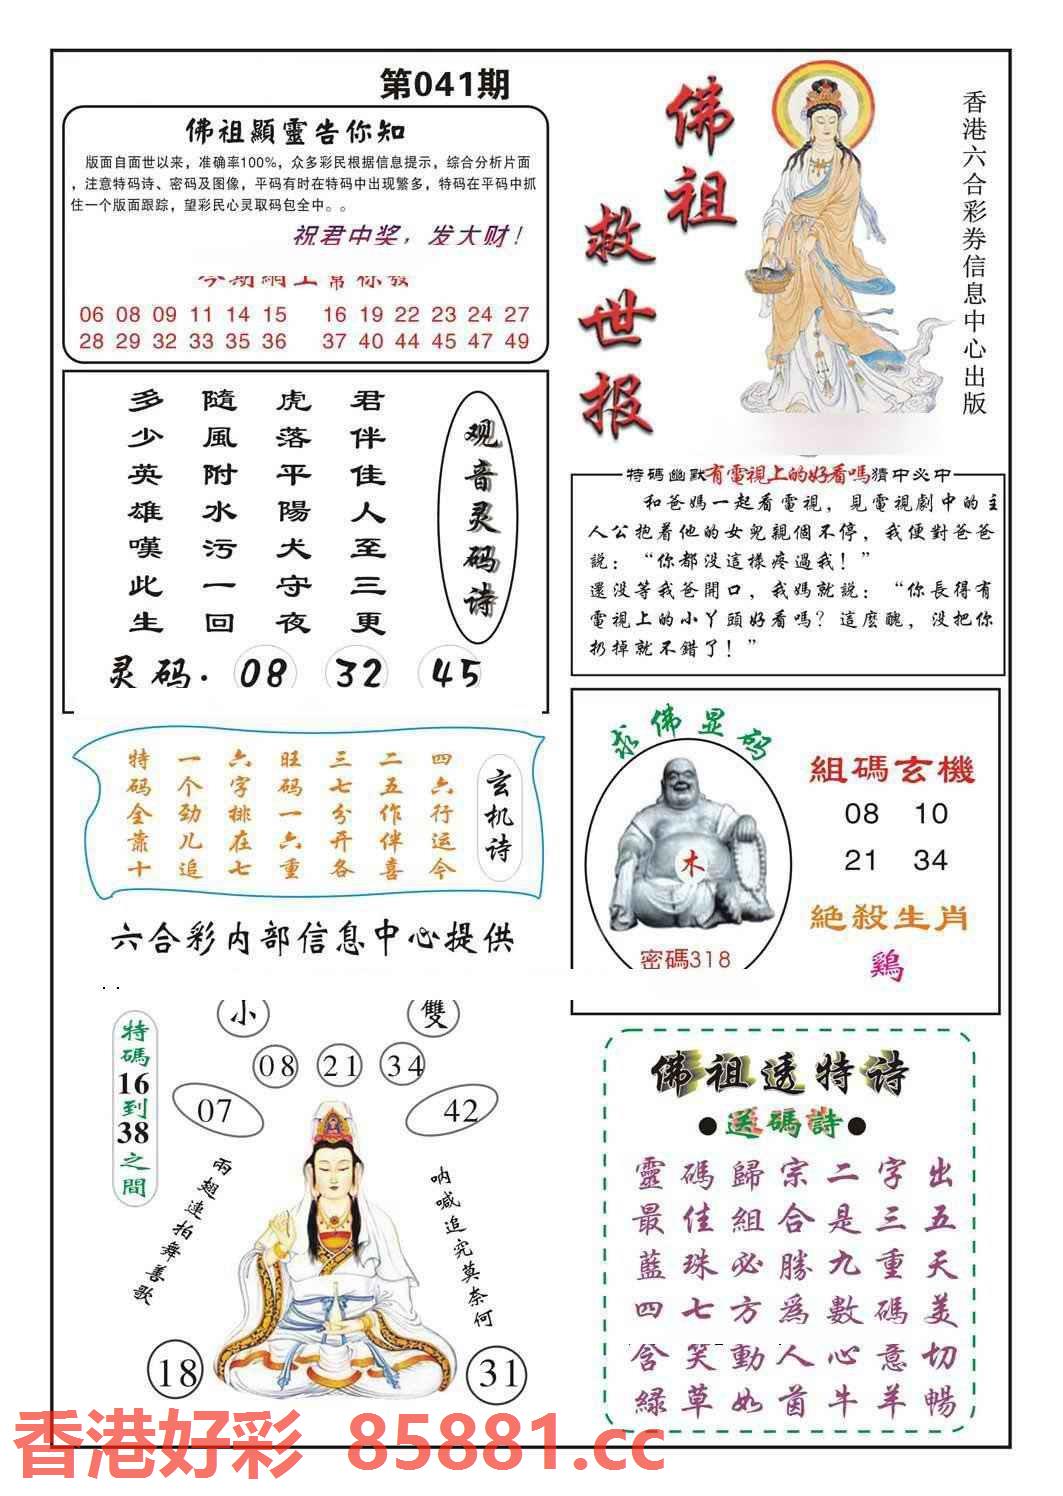 第041期
佛祖顯靈告你知
版面自面世以来，准确率100%，众多彩民根据信息提示，综合分析片面
，注意特码诗、密码及图像，平码有时在特码中出现繁多，特码在平码中抓
住一个版面跟踪，望彩民心灵取码包全中。。
祝君中奖，发大财！
06 08 09 11 14 15 16 19 22 23 24 27
28 29 32 33 35 36 37 40 44 45 47 49
佛祖
救世报
香港六合彩券信息中心出版
观音灵码诗
君伴佳人至三更
虎落平陽犬守夜
隨風附水污一回
多少英雄嘆此生
灵码. 08 32 45
特码幽默有電視上的好看嗎猜中必中
和爸媽一起看電視，見電視劇中的主
人公抱着他的女兒親個不停，我便對爸爸
説：“你都没這樣疼過我！”
還没等我爸開口，我媽就説：“你長得有
電視上的小丫頭好看嗎？這麽醜，没把你
扔掉就不錯了！”
玄机诗
四六行运今
二五作伴喜
三七分开各
旺码一六重
六字排在七
一个劲儿追
特码全靠十
六合彩内部信息中心提供
求佛显码
木
密碼318
組碼玄機
08 10
21 34
絶殺生肖
鷄
特碼16到38之間
小 雙
08 21 34
07 42
兩翅連拍舞善歌
呐喊追究莫奈何
18 31
佛祖透特诗
●送碼詩●
靈碼歸宗二字出
最佳組合是三五
藍珠必勝九重天
四七方為數碼美
含笑動人心意切
緑草如茵牛羊暢
香港好彩 85881.cc